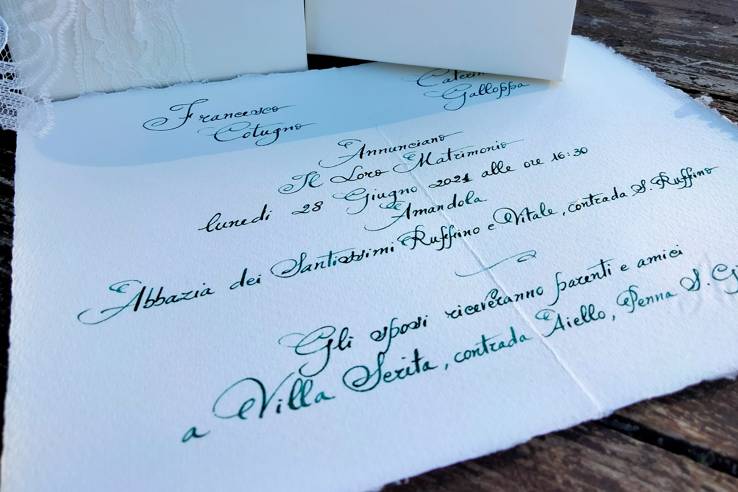 Francesco
Cotugno
Galloppa
Annunciano
Il Loro Matrimonio
lunedì 28 Giugno 2021 alle ore 16:30
Amandola
Abbazia dei Santissimi Ruffino e Vitale, contrada S. Ruffino
Gli sposi riceveranno parenti e amici
a Villa Serita, contrada Aiello, Penna S.